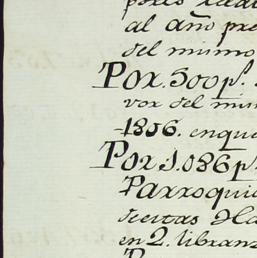 al año pre
del mismo
Por 500 p.
vor del mis
1806. enque
Por 1.086 p.
Parroquia
en 2. libranz